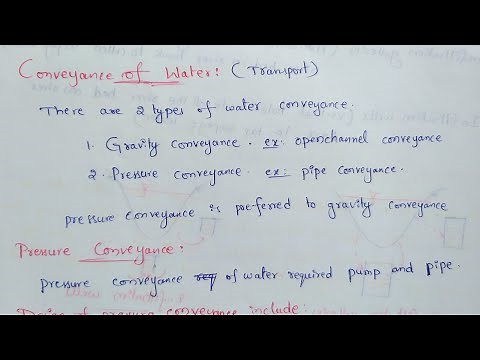 Conveyance of Water: (Transport)
There are 2 types of water conveyance.
1. Gravity conveyance. ex: openchannel conveyance
2. Pressure conveyance. ex: pipe conveyance.
pressure conveyance is preferred to gravity conveyance
Pressure Conveyance:
pressure conveyance of water required pump and pipe.
of pressure conveyance include: